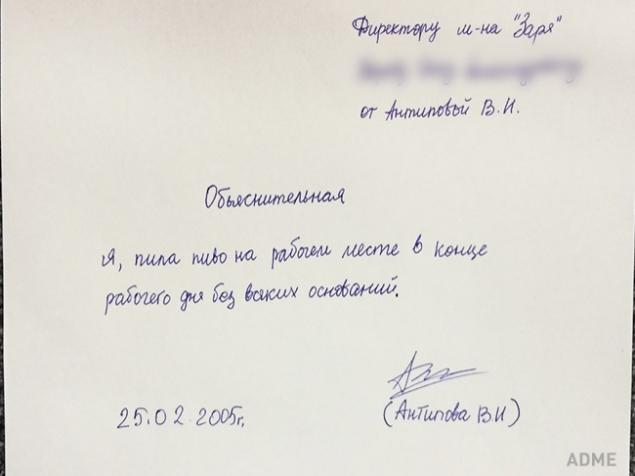 Директору м-на "Заря"
от Антиповой В.И.
Объяснительная
Я, пила пиво на рабочем месте в конце
рабочего дня без всяких оснований.
25.02.2005г.
(Антипова В.И)
ADME